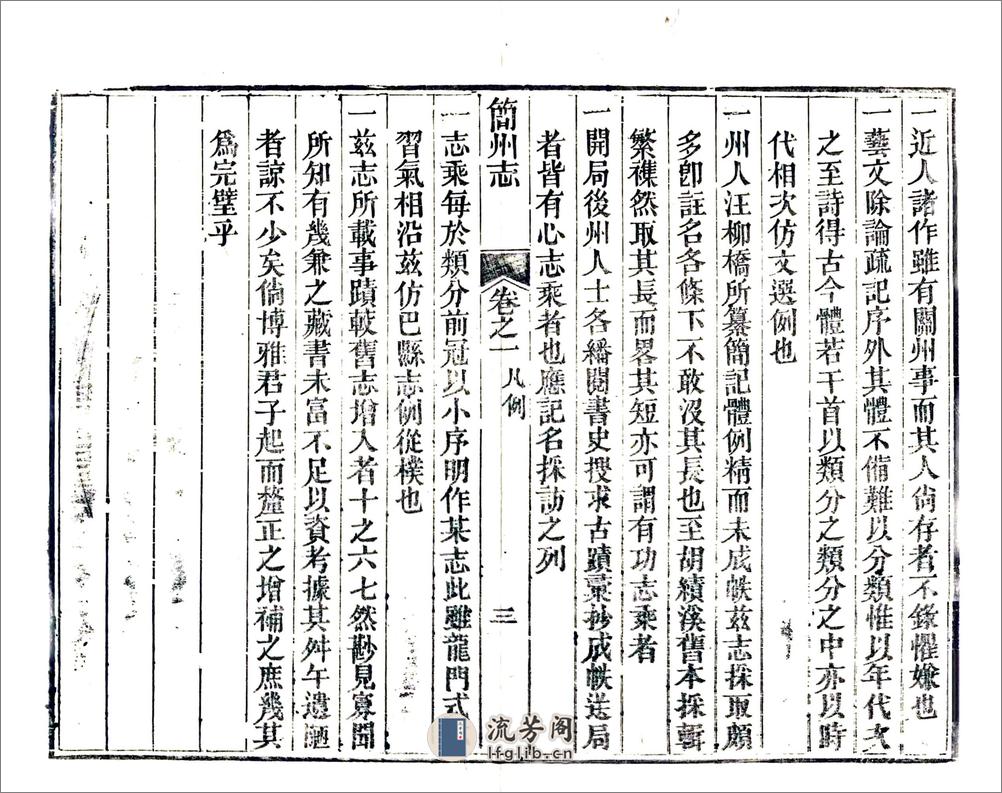 一近人諸作雖有關州事而其人尙存者不錄懼嫌也
一藝文除論疏記序外其體不備難以分類惟以年代次
之至詩得古今體若干首以類分之類分之中亦以時
代相次仿文選例也
一州人汪柳橋所纂簡記體例精而未成帙玆志採取頗
多卽註名各條下不敢沒其長也至胡續溪舊本採輯
繁襍然取其長而畧其短亦可謂有功志乘者
一開局後州人士各繙閱書史搜求古蹟彚抄成帙送局
者皆有心志乘者也應記名採訪之列
簡州志
卷之一
凡例
三
一志乘每於類分前冠以小序明作某志此雖龍門式
習氣相沿玆仿巴縣志例從樸也
一玆志所載事蹟較舊志增入者十之六七然尠見寡聞
所知有幾兼之藏書未富不足以資考據其舛午遺陋
者諒不少矣倘博雅君子起而釐正之增補之庶幾其
爲完璧乎
流芳阁
lfglib.cn